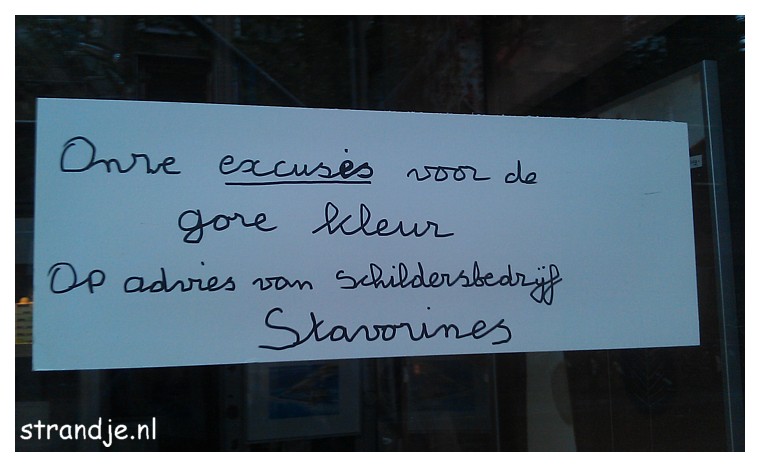 Onze excuses voor de
gore kleur
Op advies van schildersbedrijf
Stavorines
strandje.nl